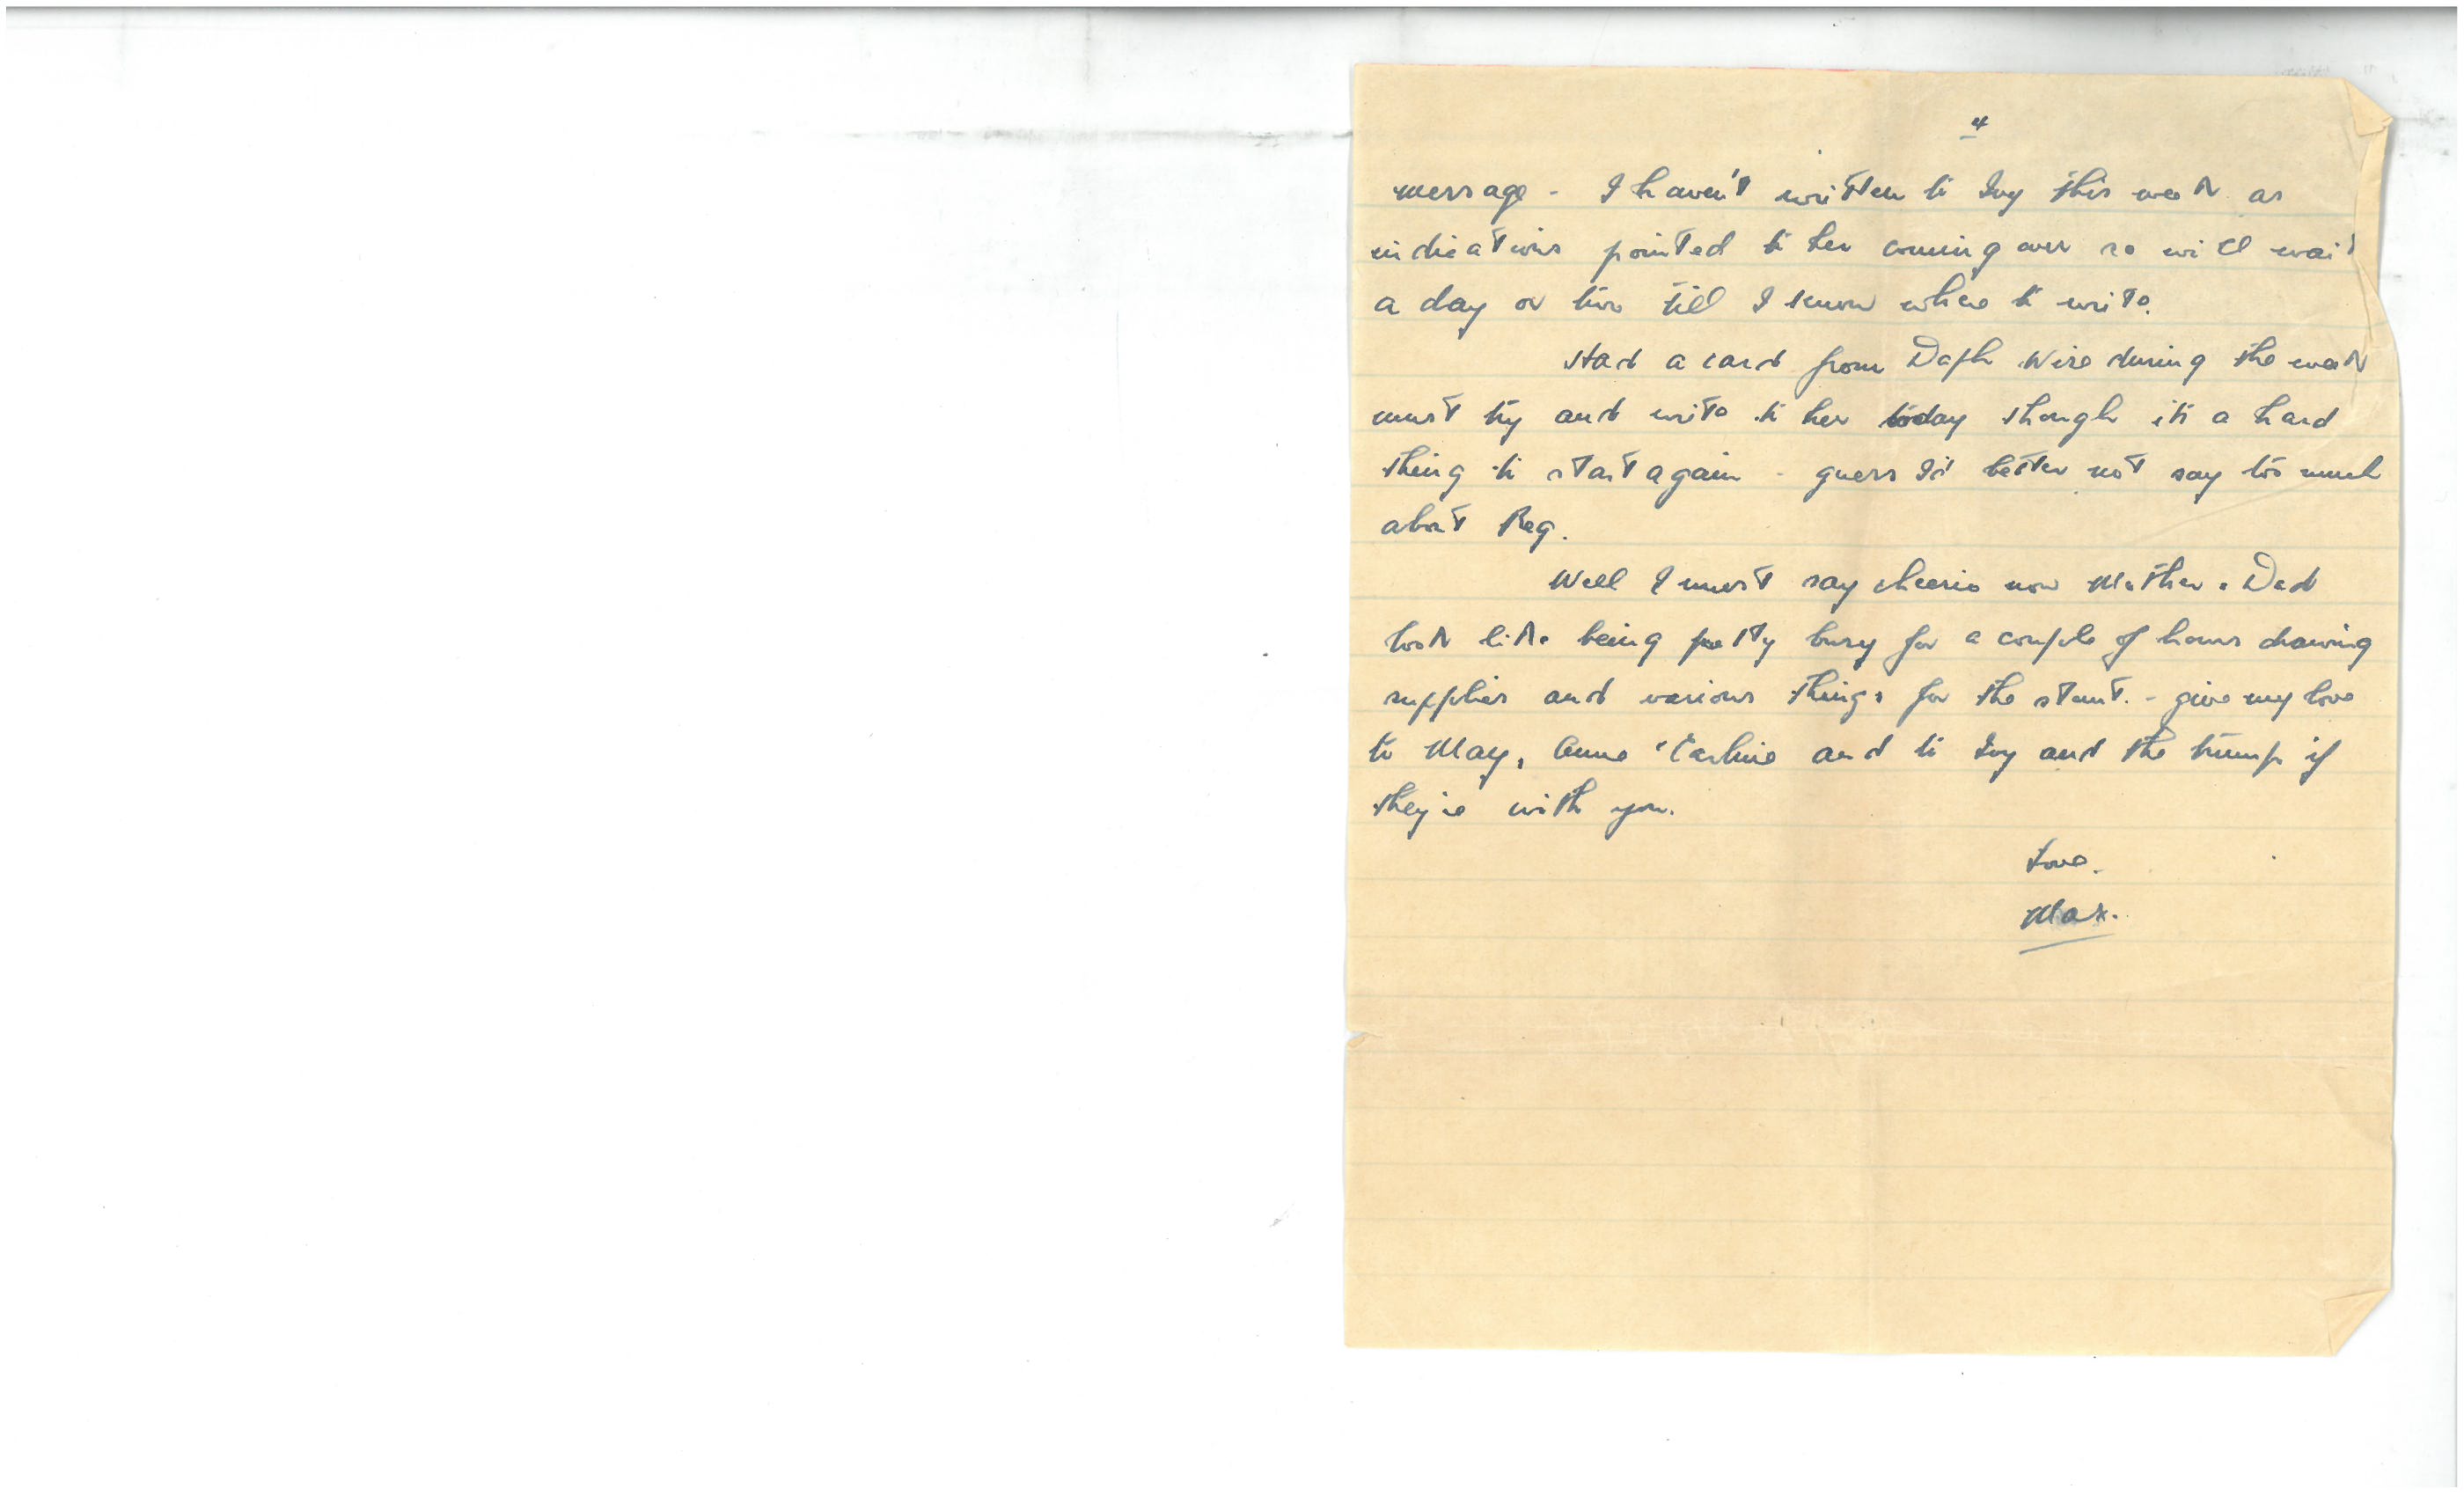 4
message - I haven't written to Ivy this week as
indications pointed to her coming over so will wait
a day or two till I know where to write.
Had a card from Daph Wise during the week
must try and write to her today though it's a hard
thing to start again - guess I'd better not say too much
about Reg.
Well I must say cheerio now Mother & Dad
look like being pretty busy for a couple of hours drawing
supplies and various things for the stunt. - give my love
to May, Anne & and to Ivy and the trump if
they're with you.
Love.
Max.